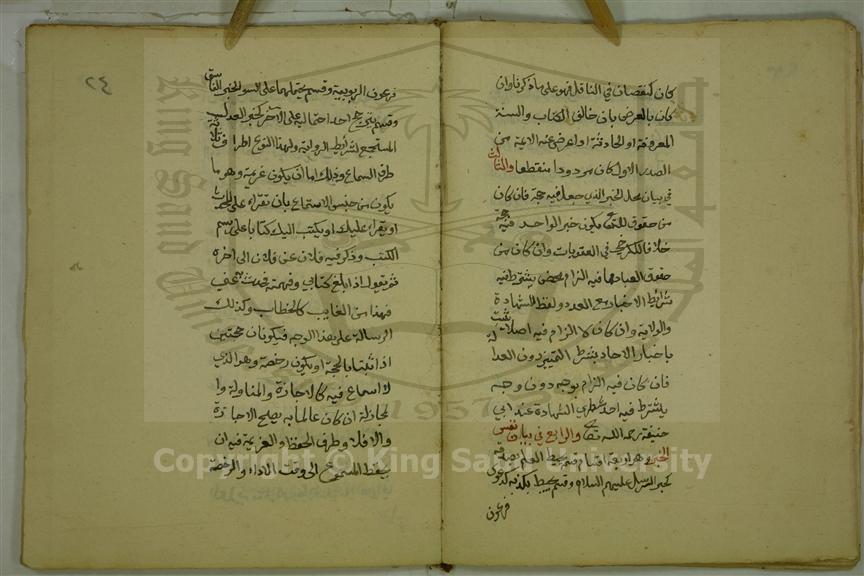 كان لنقصان في الناقل فهو على ما ذكرنا وان
كان بالعرض بان خالف الكتاب والسنة
المعروفة او الحادثة او اعرض عنه الائمة من
الصدر الاول كان مردودا منقطعا والثالث
في بيان محل الخبر الذي جعل فيه حجة فان كان
من حقوق الله تع يكون خبر الواحد فيه حجة
خلافا للكرخي في العقوبات وان كان من
حقوق العباد مما فيه الزام محض يشترط فيه
شرائط الاخبار مع العدد ولفظ الشهادة
والولاية وان كان لا الزام فيه اصلا يثبت
باخبار الاحاد بشرط التمييز دون العدا
فان كان فيه الزام بوجه دون وجه
يشترط فيه احد شطري الشهادة عند ابي
حنيفة رحمه الله تعالى والرابع في بيان نفس
الخبر وهو اربعة اقسام قسم يحيط العلم بصدقه
كخبر الرسل عليهم السلام وقسم يحيط بكذبه كدعوى
فرعون
٢٤
فرعون الربوبية وقسم يحتملهما على السواء كخبر الفاسق
وقسم يترجح احد احتماليه على الآخر كخبر العدل
المستجمع لشرائط الرواية ولهذا النوع اطراف ثلاثة
طرف السماع وذلك اما ان يكون عزيمة وهو ما
يكون من جنس الاستماع بان تقراء على المحدث
او يقراء عليك او يكتب اليك كتابا على رسم
الكتب وذكر فيه فلان عن فلان الى اخره
ثم يقول اذا بلغ كتابي وفهمته فحدث به عني
فهذا من الغايب كالخطاب وكذلك
الرسالة على هذا الوجه فيكونان حجتين
اذا ثبتا بالحجة او يكون رخصة وهو الذي
لا اسماع فيه كالاجازة والمناولة وا
لمجاز له ان كان عالما به يصح الاجازة
والا فلا وطرف الحفظ والعزيمة فيه ان
يحفظ المسموع الى وقت الاداء والرخصة
Copyright © King Saud University
King Saud University
1957